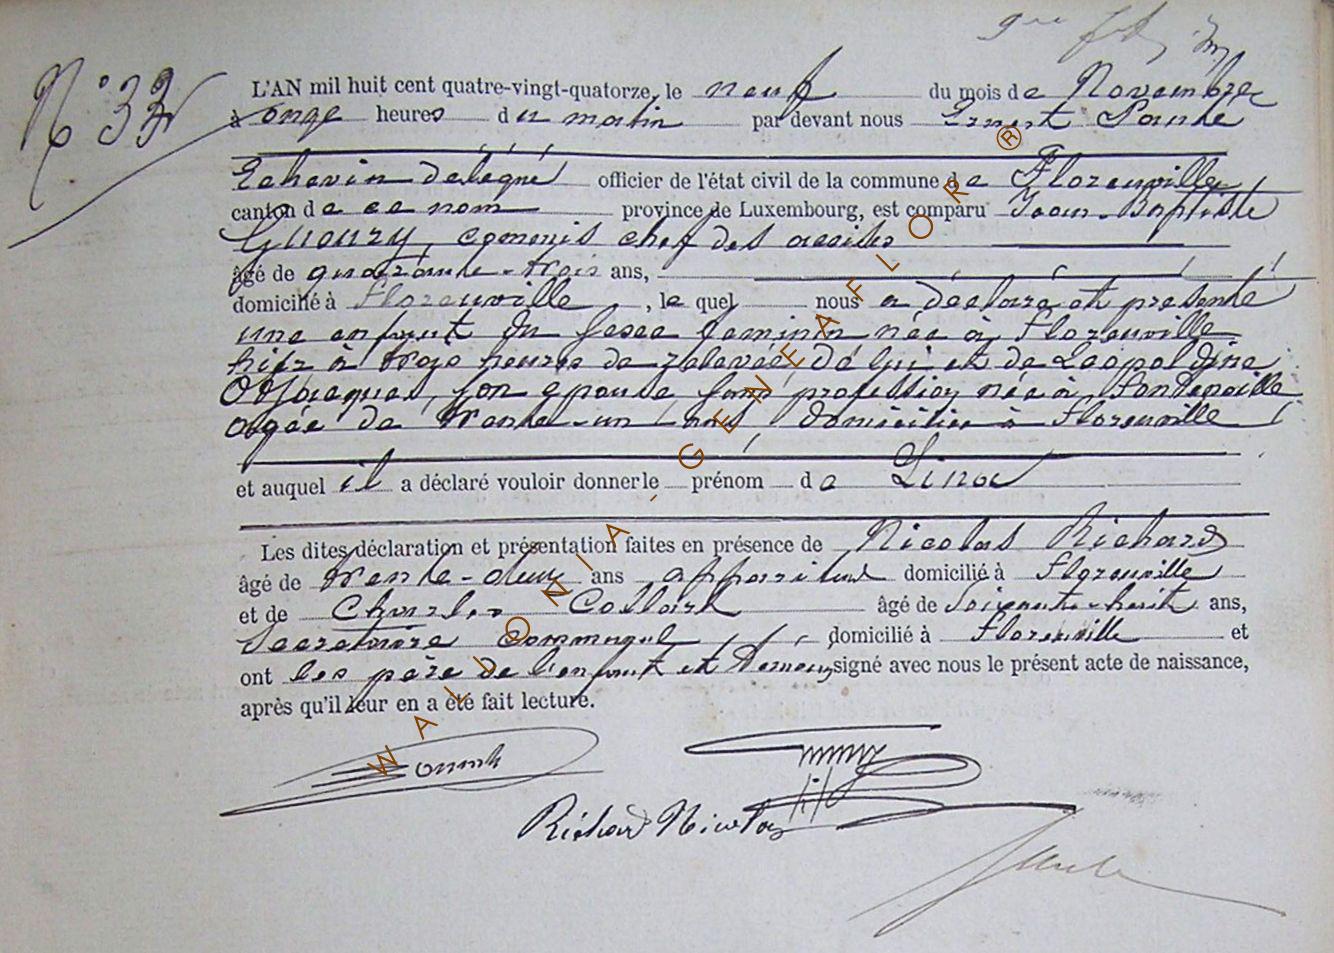 N° 33
L'AN mil huit cent quatre-vingt-quatorze, le neuf du mois de Novembre
à onze heures du matin par devant nous Ernest
Echevin délégué officier de l'état civil de la commune de Florenville
canton de ce nom province de Luxembourg, est comparu Jean-Baptiste
commis chef des accises
âgé de quarante-trois ans,
domicilié à Florenville, le quel nous a déclaré et présenté
une enfant du sexe feminin née à Florenville
hier à trois heures de relevée, de lui et de Léopoldine
son epouse sans profession née à Fontenoille
agée de trente-un ans domiciliés à Florenville
et auquel il a déclaré vouloir donner le prénom de Lina
Les dites déclaration et présentation faites en présence de Nicolas Richard
âgé de trente-deux ans appariteur domicilié à Florenville
et de Charles Collard âgé de soixante-huit ans,
Secretaire communal domicilié à Florenville et
ont les père de l'enfant et témoins signé avec nous le présent acte de naissance,
après qu'il leur en a été fait lecture.
Richard Nicolas
WALLONIA-GENEAFLOR ®